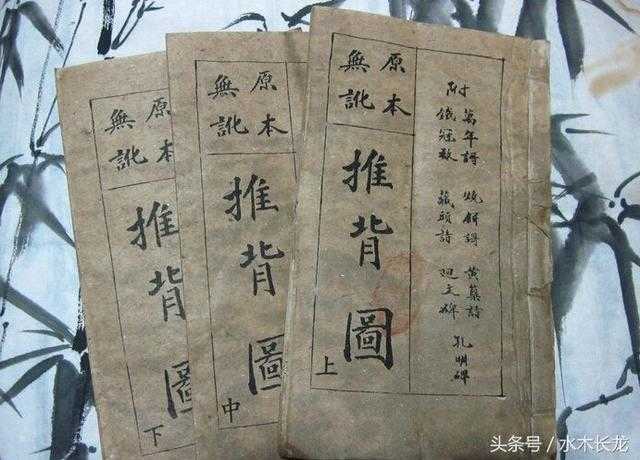 附
萬年 燒餅 黃蘗詩 孔明碑
鐵冠數 藏頭詩 碑
原本
無訛
推背圖
上
原本
無訛
推背圖
中
原本
無訛
推背圖
下
头条号／水木长龙